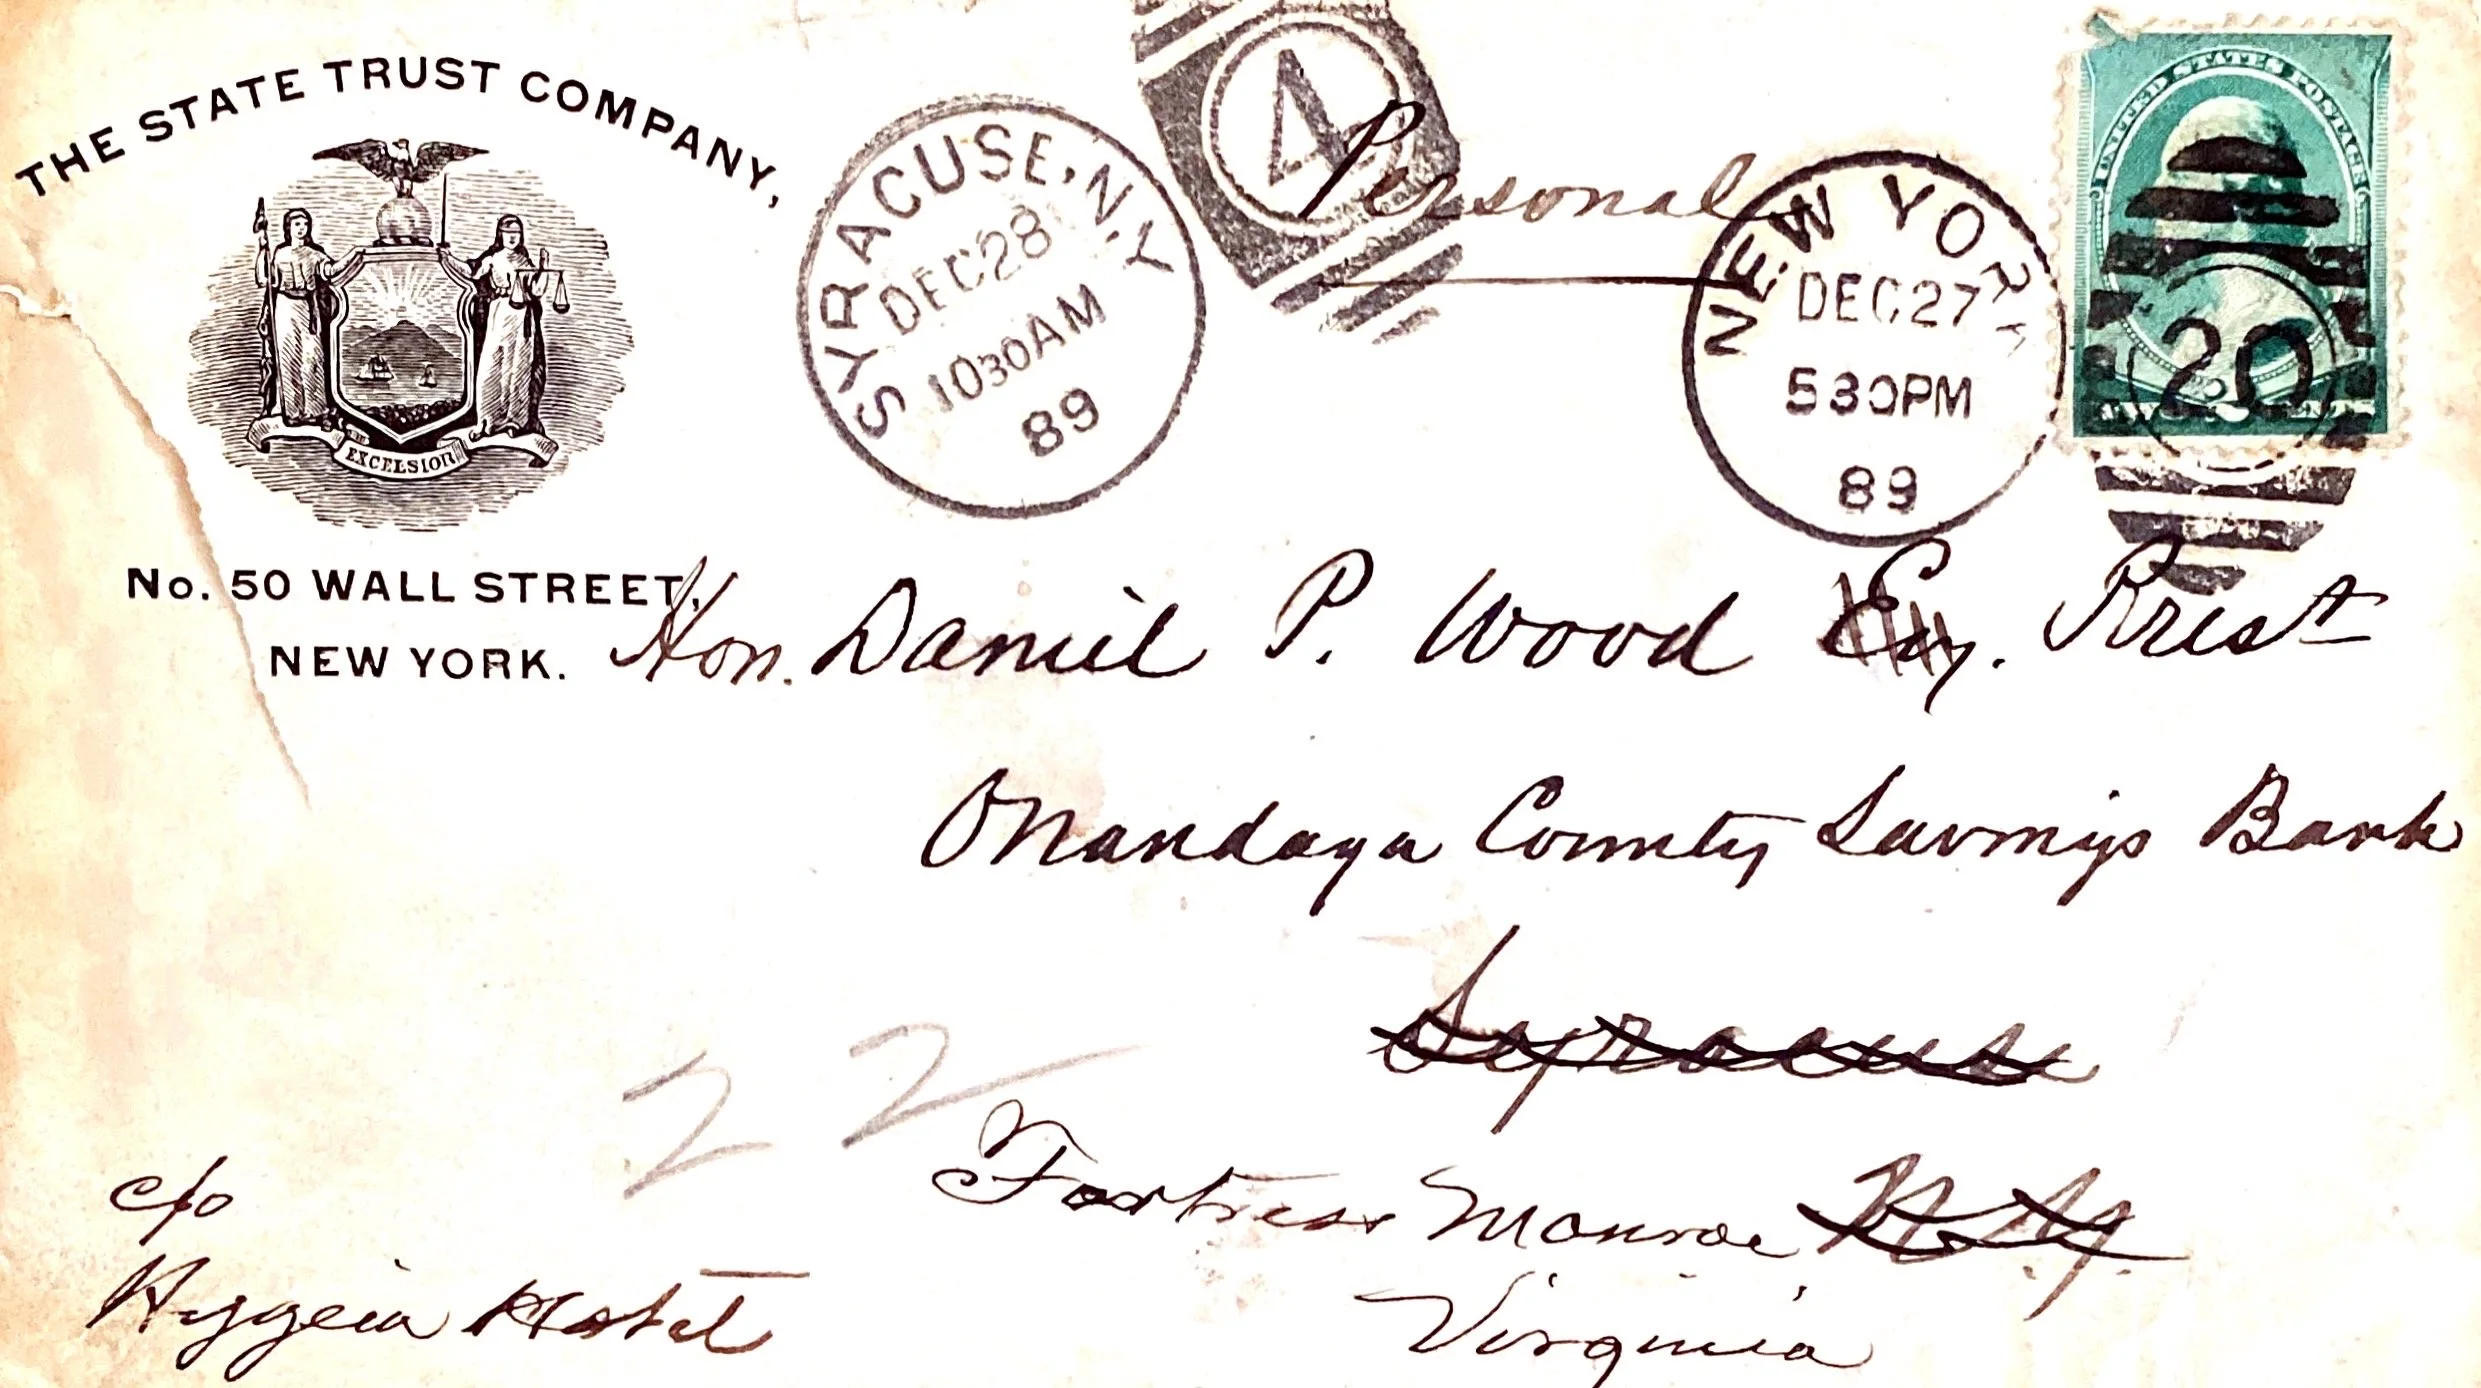 THE STATE TRUST COMPANY,
EXCELSIOR
No. 50 WALL STREET,
NEW YORK.
SYRACUSE, N.Y.
DEC 28
1030AM
89
4
Personal
NEW YORK
DEC 27
530PM
89
UNITED STATES POSTAGE
20
Hon. Daniel P. Wood Esq. Prest
Onandaga County Savings Bank
Syracuse
N.Y.
22
Fortress Monroe
Virginia
c/o
Hygeia Hotel